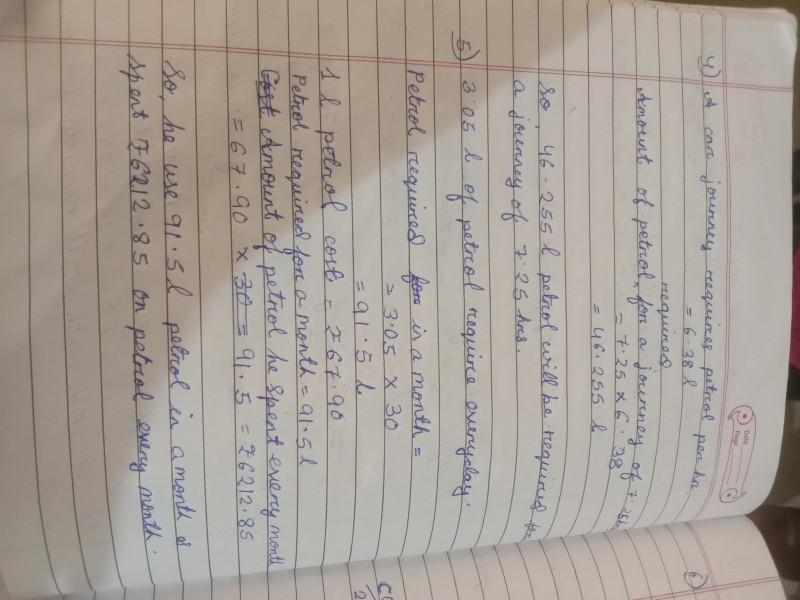 Date
Page
4) A car journey requires petrol per hr
= 6.38 l
Amount of petrol required for a journey of 7.25hr
= 7.25 x 6.38
= 46.255 l
So, 46.255 l petrol will be required for
a journey of 7.25 hrs.
5) 3.05 l of petrol require everyday.
Petrol required in a month =
= 3.05 x 30
= 91.5 l
1 l petrol cost = ₹67.90
Petrol required for a month = 91.5 l
Amount of petrol he spent every month
= 67.90 x 30 = 91.5 = ₹6212.85
So, he use 91.5 l petrol in a month &
spent ₹6212.85 on petrol every month.
6)